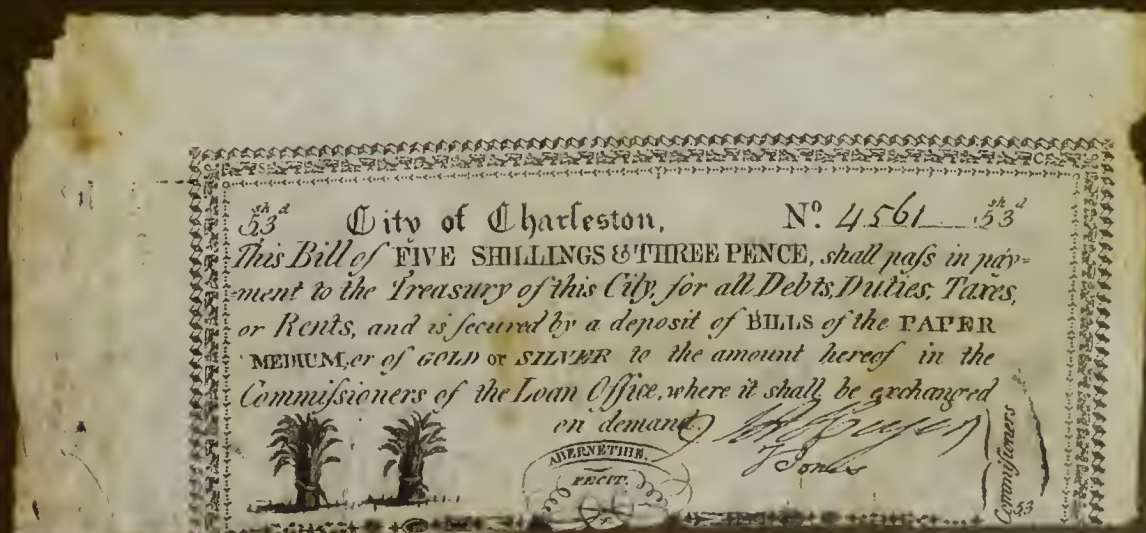 5sh3d City of Charleſton, No. 4561 5sh3d
This Bill of FIVE SHILLINGS & THREE PENCE, shall paſs in pay=
=ment to the Treasury of this City, for all Debts, Duties, Taxes,
or Rents, and is ſecured by a deposit of BILLS of the PAPER
MEDIUM, or of GOLD or SILVER to the amount hereof in the
Commiſsioners of the Loan Office, where it shall be exchanged
on demand
Jones
Commiſsioners
ABERNETHIE.
FECIT.
53